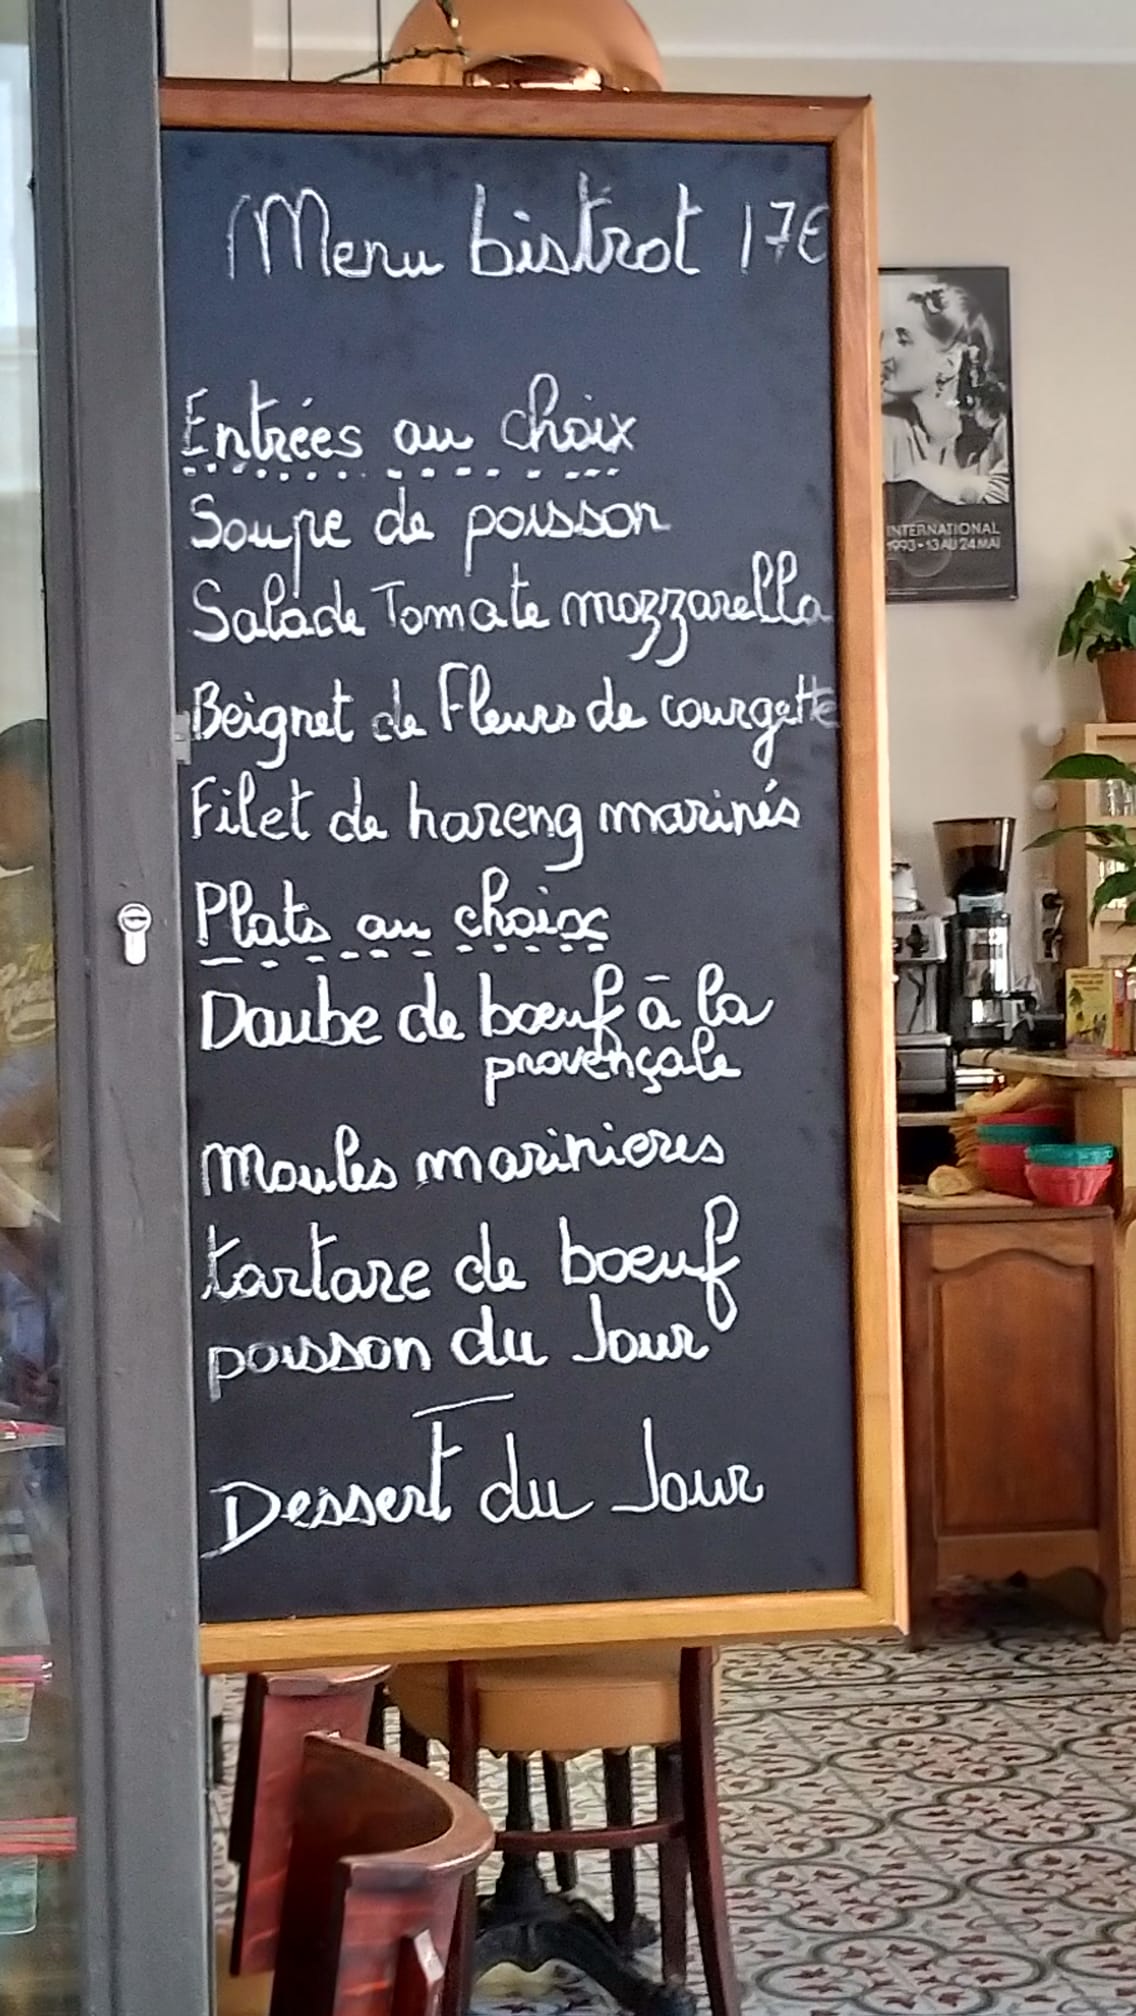 Menu bistrot 17€
Entrées au choix
Soupe de poisson
Salade Tomate mozzarella
Beignet de Fleurs de courgette
Filet de hareng marinés
Plats au choix
Daube de bœuf à la
provençale
Moules marinieres
tartare de boeuf
poisson du Jour
Dessert du Jour
INTERNATIONAL
1993 • 13 AU 24 MAI